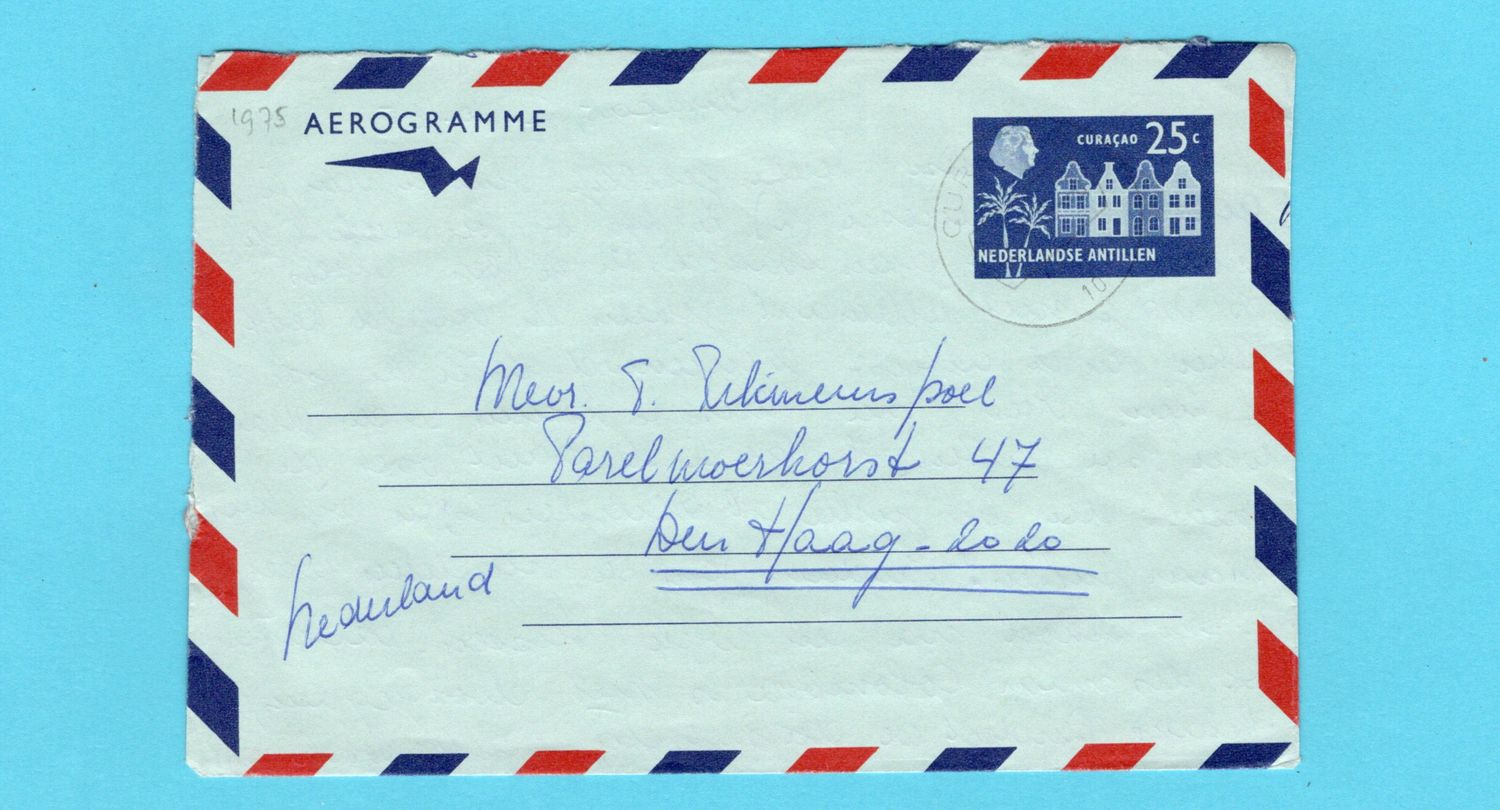 1975
AEROGRAMME
CURAÇAO 25 c
NEDERLANDSE ANTILLEN
10
Mevr. T.
Parelmoerhorst 47
Den Haag - 2020
Nederland